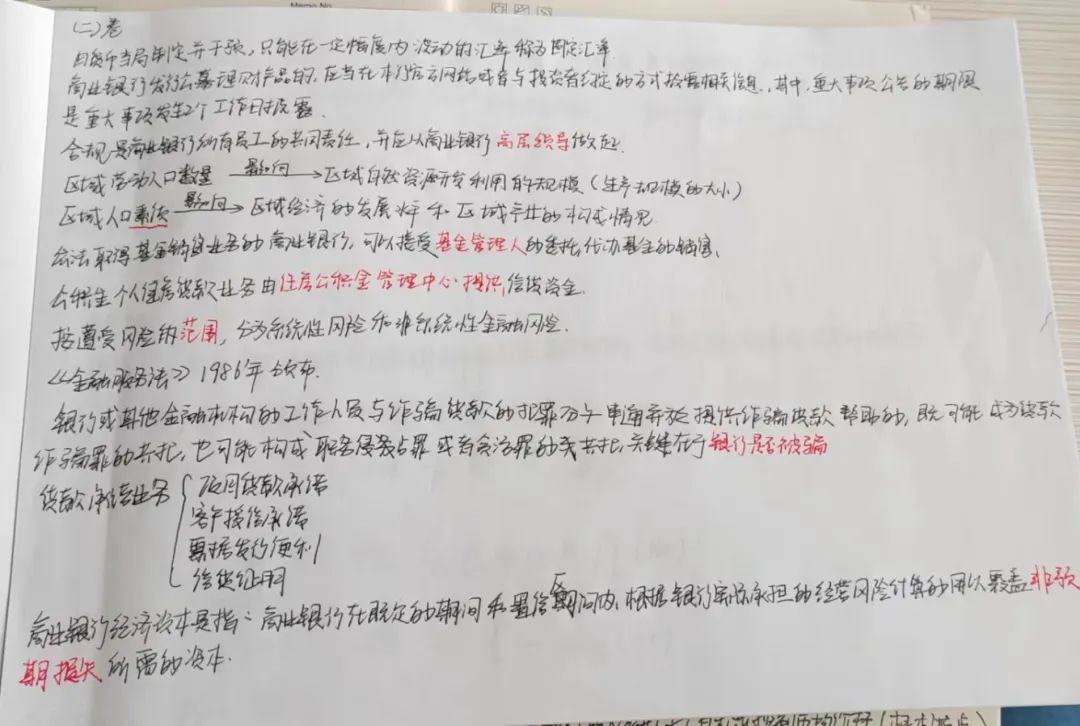 Memo No.
(二)卷
由货币当局制定并干预,只能在一定幅度内波动的汇率称为固定汇率.
商业银行发行公募理财产品的,应当在本行官方网站或者与投资者约定的方式披露相关信息,其中,重大事项公告的期限
是重大事项发生2个工作日披露.
合规是商业银行所有员工的共同责任,并应从商业银行高层领导做起.
区域劳动人口数量 影响 区域自然资源开发利用的规模(生产规模的大小)
区域人口素质 影响 区域经济的发展水平和区域产业的构成情况
合法取得基金销售业务的商业银行,可以接受基金管理人的委托,代办基金的销售.
公积金个人住房贷款业务由住房公积金管理中心提供信贷资金.
按遭受风险的范围,分为系统性风险和非系统性金融风险.
《金融服务法》1986年颁布.
银行或其他金融机构的工作人员与诈骗贷款的犯罪分子串通并为之提供诈骗贷款帮助的,既可能成为贷款
诈骗罪的共犯,也可能构成职务侵占罪或者贪污罪的共犯,关键在于银行是否被骗
贷款承诺业务
项目贷款承诺
客户授信承诺
票据发行便利
信贷证明
商业银行经济资本是指:商业银行在既定的期间和置信区间内,根据银行实际承担的经营风险计算的用以覆盖非预
期损失所需的资本.